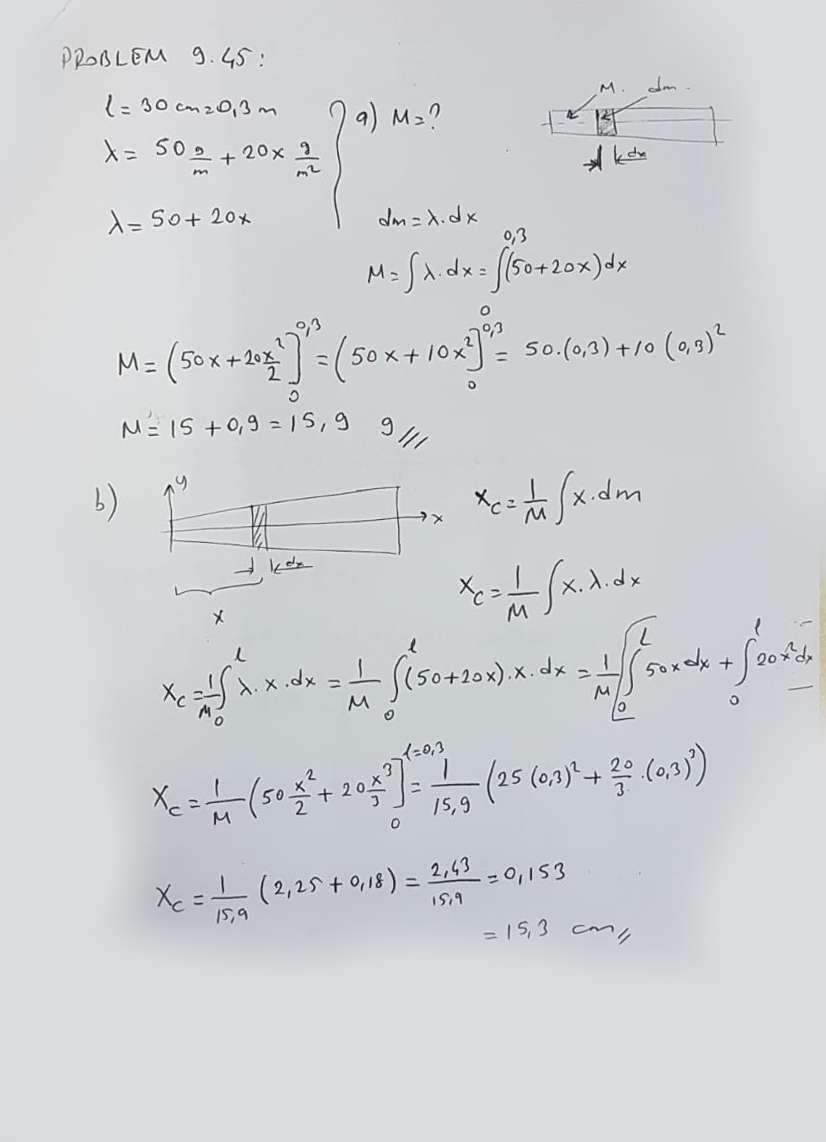 PROBLEM 9.45:
l = 30 cm = 0,3 m
a) M = ?
M. dm.
λ = 50 g/m + 20x g/m²
dx
λ = 50 + 20x
dm = λ.dx
M = ∫λ.dx = ∫₀^0,3 (50+20x)dx
M = (50x + 20x²/2]₀^0,3 = (50x + 10x²]₀^0,3 = 50.(0,3) + 10 (0,3)²
M = 15 + 0,9 = 15,9 g
b)
y
x
dx
x
x_c = 1/M ∫x.dm
x_c = 1/M ∫x.λ.dx
x_c = 1/M ∫₀^l λ.x.dx = 1/M ∫₀^l (50+20x).x.dx = 1/M [∫₀^l 50x dx + ∫₀^l 20x²dx
x_c = 1/M (50 x²/2 + 20 x³/3]₀^l=0,3 = 1/15,9 (25 (0,3)² + 20/3 .(0,3)³)
x_c = 1/15,9 (2,25 + 0,18) = 2,43/15,9 = 0,153
= 15,3 cm